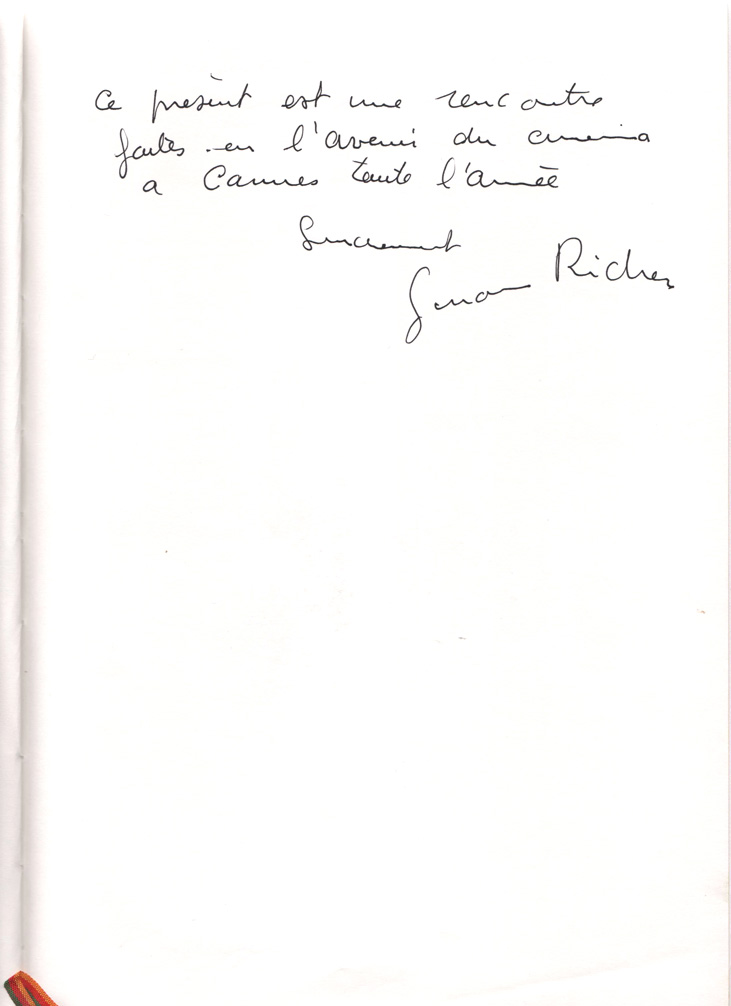 Ce présent est une rencontre
faites en l'avenir du cinema
a Cannes toute l'année
Sincerement